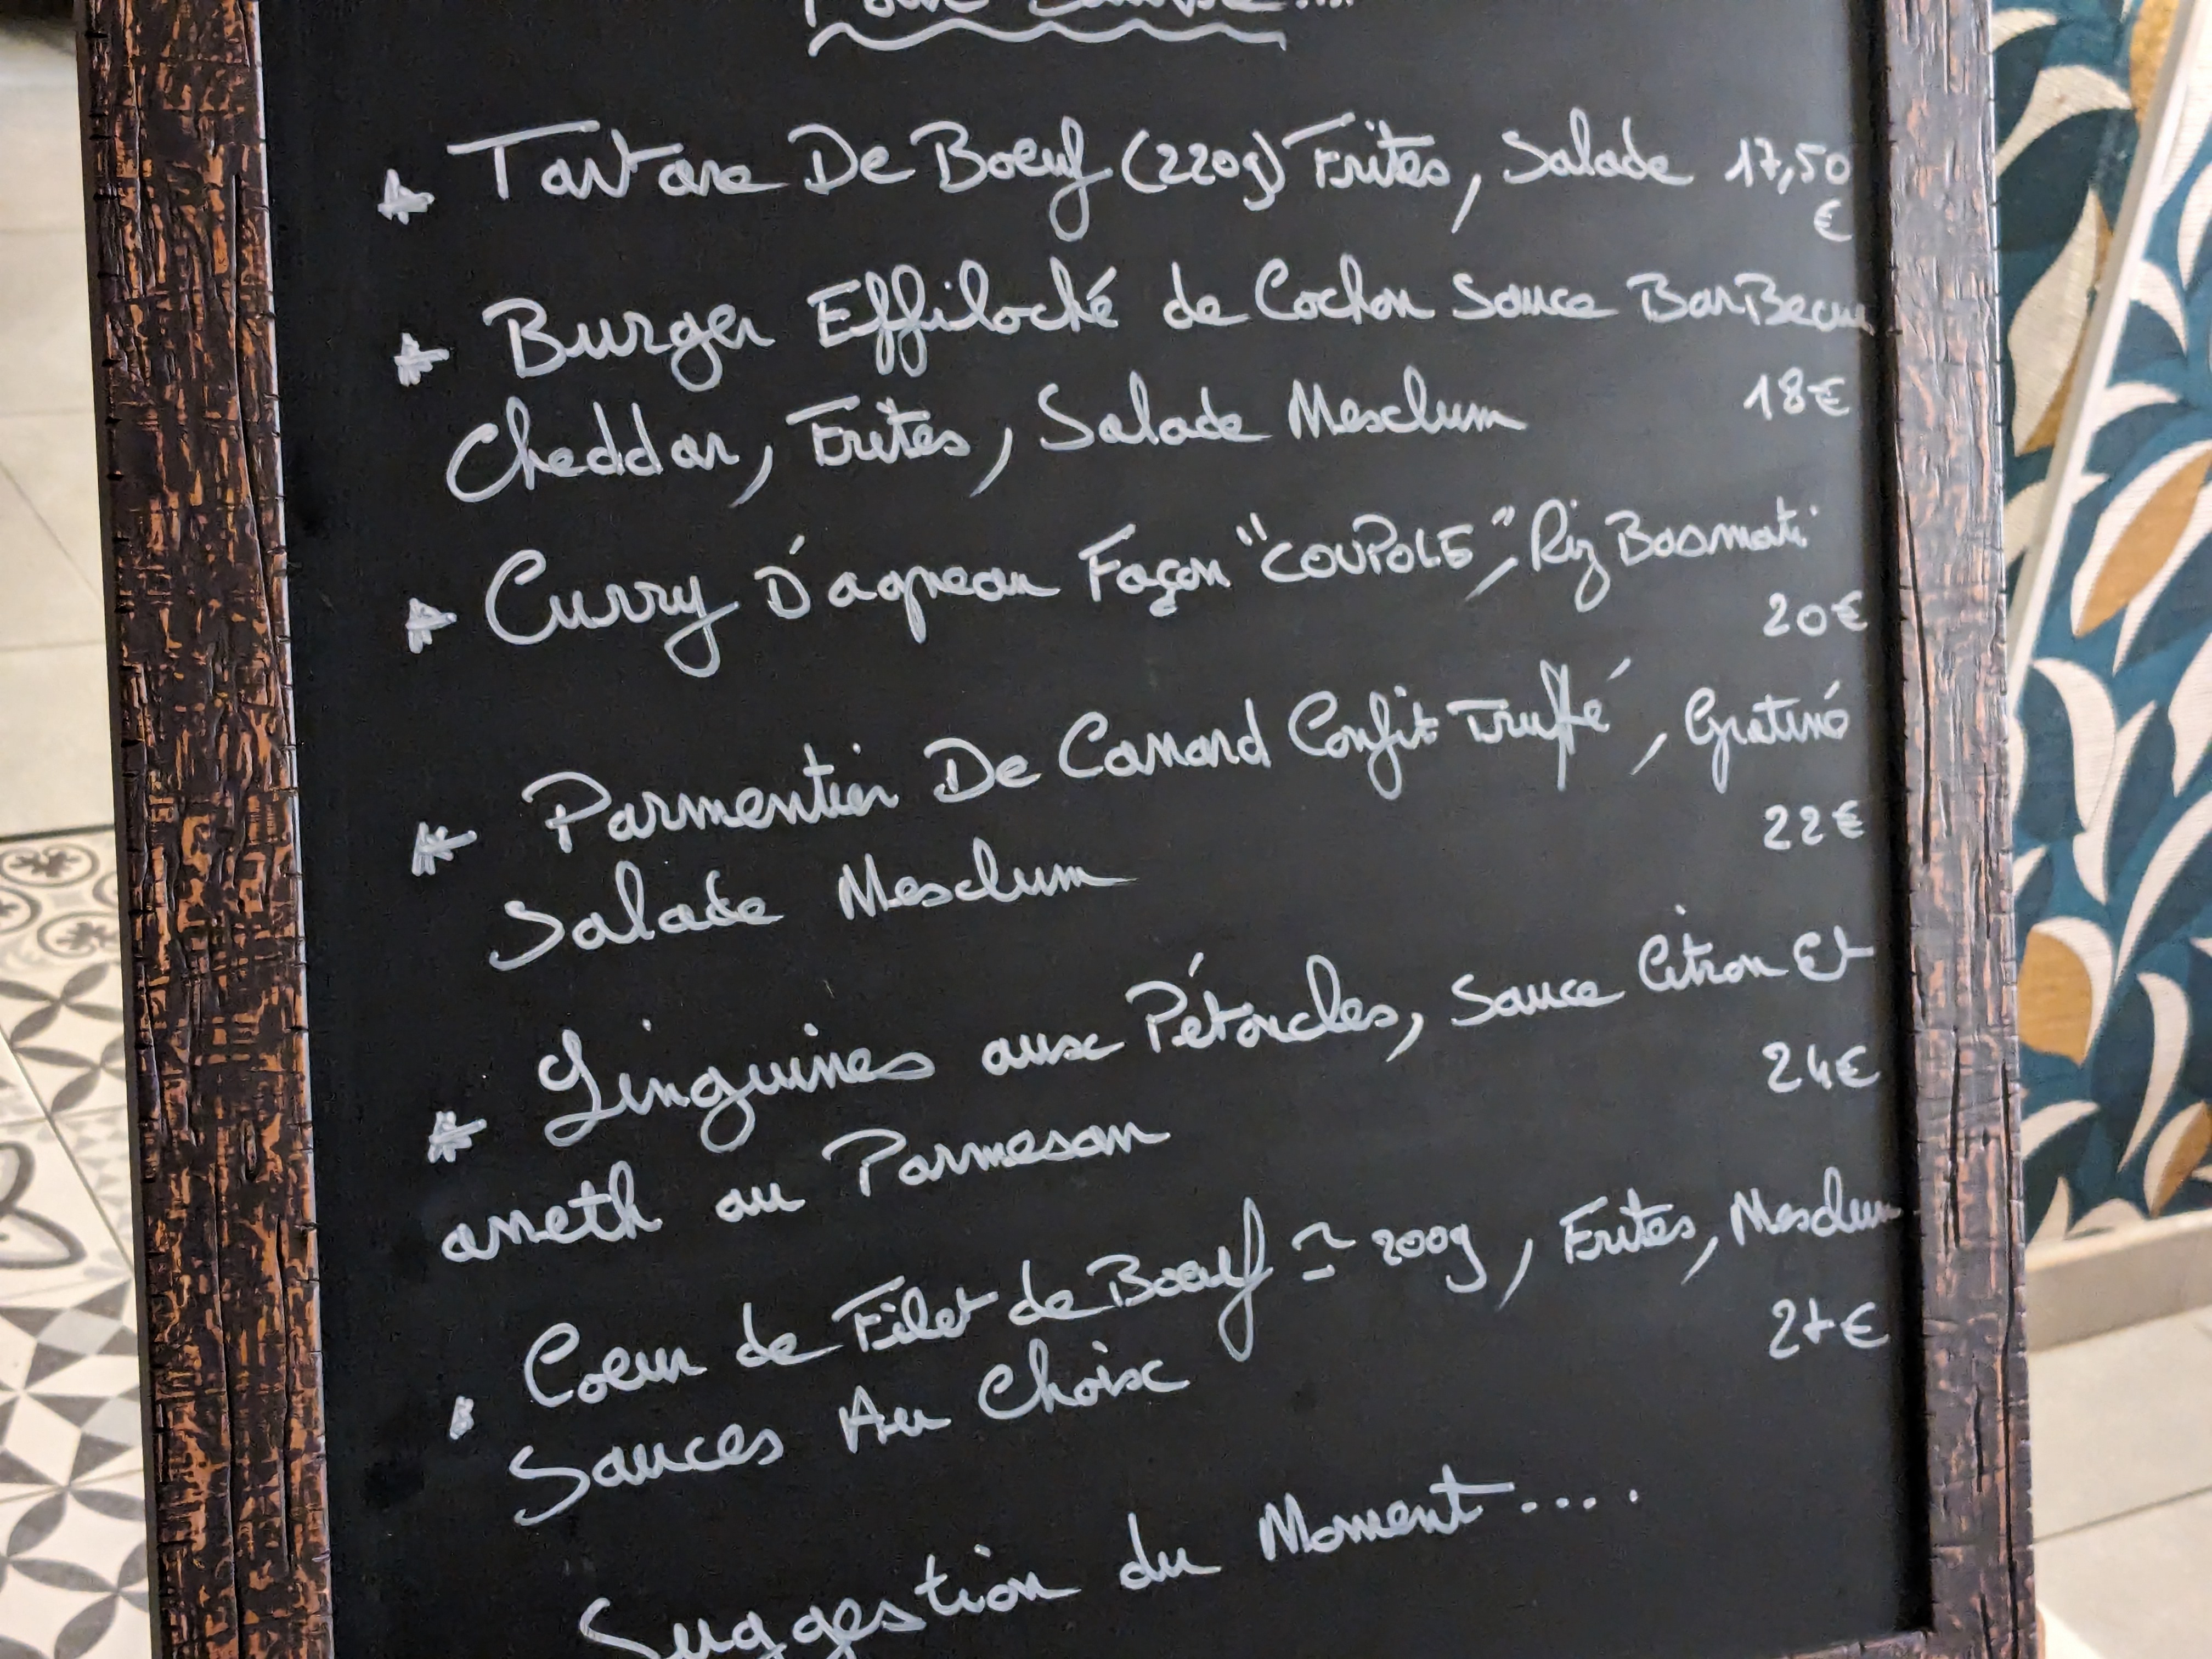 * Tartare De Boeuf (220g) Frites, Salade 17,50
€
* Burger Effiloché de Cochon Sauce BarBecue
Cheddar, Frites, Salade Mesclum 18€
* Curry D'agneau Façon "COUPOLE", Riz Basmati
20€
* Parmentier De Canard Confit Truffé, Gratiné
22€
Salade Mesclum
* Linguines aux Pétoncles, Sauce Citron Et
24€
aneth au Parmesan
* Coeur de Filet de Boeuf ≃ 200g, Frites, Mesclum
27€
Sauces Au Choix
Suggestion du Moment....